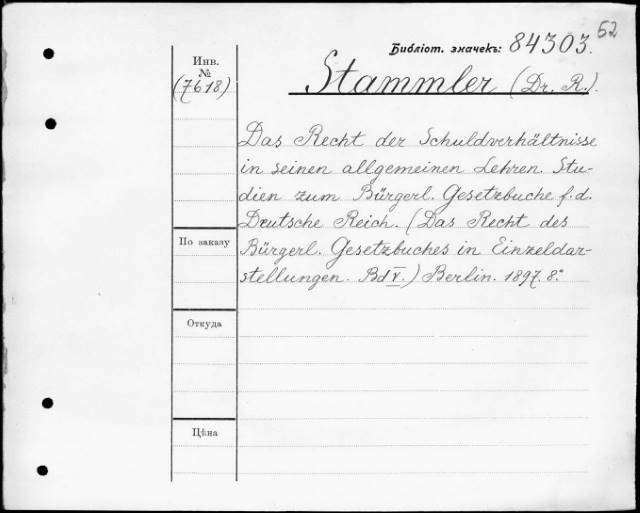 52
Библіот. значекъ: 84303.
Инв.
№
(7618)
Stammler (Dr. R.).
Das Recht der Schuldverhältnisse
in seinen allgemeinen Lehren. Stu-
dien zum Bürgerl. Gesetzbuche f. d.
Deutsche Reich. (Das Recht des
Bürgerl. Gesetzbuches in Einzeldar-
stellungen. Bd V.) Berlin. 1897. 8.°
По заказу
Откуда
Цѣна